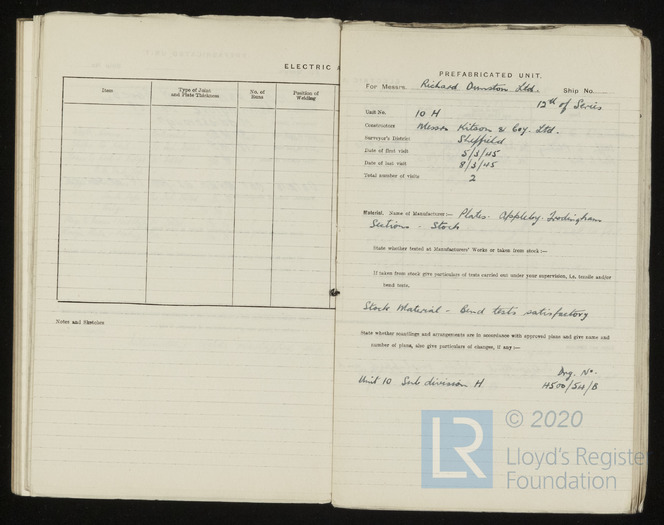 ELECTRIC A
Item
Type of Joint
and Plate Thickness
No. of
Runs
Position of
Welding
Notes and Sketches
PREFABRICATED UNIT.
For Messrs. Richard Dunston Ltd. Ship No.
12th of Series
Unit No. 10 H
Constructors Messrs Kitson & Coy. Ltd.
Surveyor's District Sheffield
Date of first visit 5/3/45
Date of last visit 8/3/45
Total number of visits 2
Material. Name of Manufacturer:— Plates - Appleby. Frodingham
Sections - Stock
State whether tested at Manufacturers' Works or taken from stock:—
If taken from stock give particulars of tests carried out under your supervision, i.e. tensile and/or
bend tests.
Stock Material - Bend tests satisfactory
State whether scantlings and arrangements are in accordance with approved plans and give name and
number of plans, also give particulars of changes, if any:—
Drg. No.
Unit 10 Sub division H
© 2020
LR
Lloyd's Register
Foundation